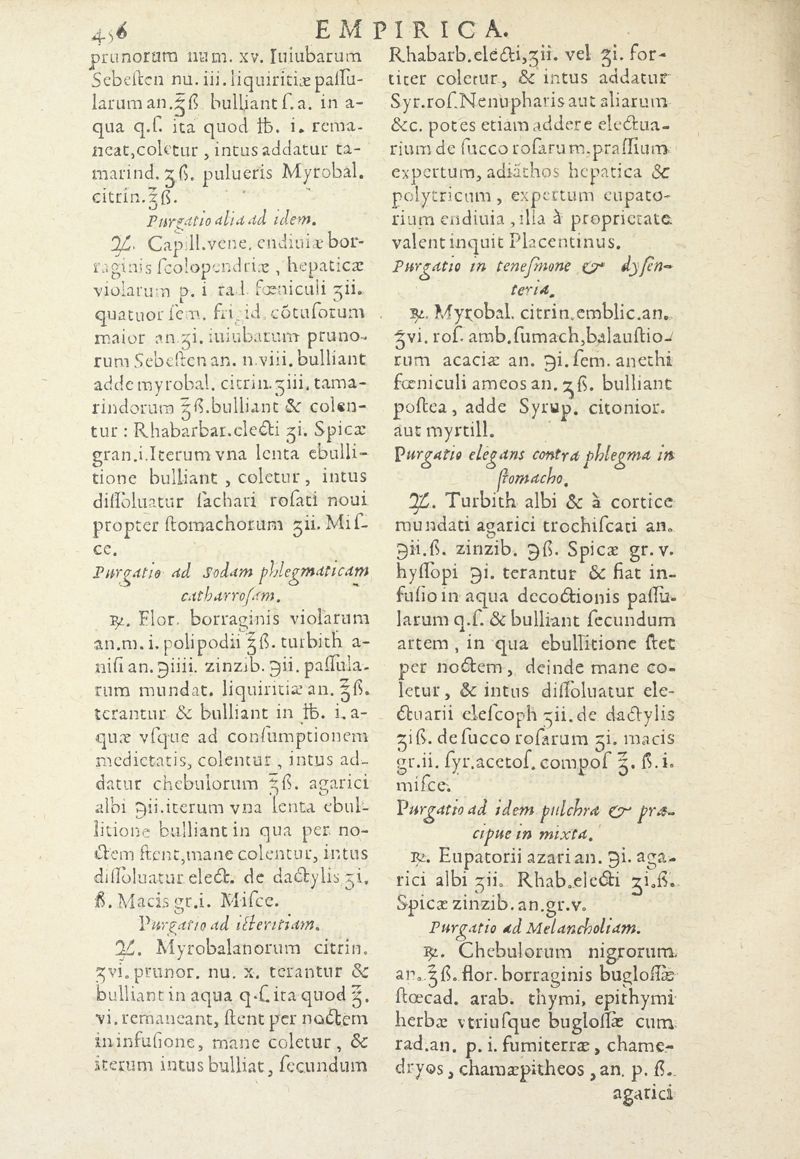 456
EMPIRICA.
prunorum num. xv. Iuiubarum
Sebeſten nu. iii. liquiritiæ paſſu-
larum an.℥ß bulliant ſ.a. in a-
qua q.ſ. ita quod ℔. i. rema-
neat,coletur , intus addatur ta-
marind. ʒß. pulueris Myrobal.
citrin.℥ß.
Purgatio alia ad idem.
♃. Capill.vene. endiuiæ bor-
raginis ſcolopendriæ , hepaticæ
violarum p. i rad. fœniculi ʒii.
quatuor ſem. frigid. cõtuſorum
maior an.ʒi. iuiubarum pruno-
rum Sebeſten an. n.viii. bulliant
adde myrobal. citrin.ʒiii. tama-
rindorum ℥ß.bulliant & colen-
tur : Rhabarbar.electi ʒi. Spicæ
gran.i.Iterum vna lenta ebulli-
tione bulliant , coletur , intus
diſſoluatur ſachari roſati noui
propter ſtomachorum ʒii. Miſ-
ce.
Purgatio ad Sodam phlegmaticam
catharroſam.
℞. Flor. borraginis violarum
an.m. i. polipodii ℥ß. turbith a-
niſi an.℈iiii. zinzib. ℈ii. paſſula-
rum mundat. liquiritiæ an. ℥ß.
terantur & bulliant in ℔. i. a-
quæ vſque ad conſumptionem
medietatis, colentur , intus ad-
datur chebulorum ℥ß. agarici
albi ℈ii.iterum vna lenta ebul-
litione bulliant in qua per no-
ctem ſtent,mane colentur, intus
diſſoluatur elect. de dactylis ʒi.
ß. Macis gr.i. Miſce.
Purgatio ad icteritiam.
♃. Myrobalanorum citrin.
ʒvi. prunor. nu. x. terantur &
bulliant in aqua q.ſ. ita quod ℥.
vi. remaneant, ſtent per noctem
in infuſione, mane coletur , &
iterum intus bulliat , ſecundum
Rhabarb.electi,ʒii. vel ʒi. for-
titer coletur , & intus addatur
Syr.roſ.Nenupharis aut aliarum
&c. potes etiam addere electua-
rium de ſucco roſarum.praſſium
expertum, adiāthos hepatica &
polytricum , expertum eupato-
rium endiuia , illa à proprietate
valent inquit Placentinus.
Purgatio in teneſmone & dyſen-
teria.
℞. Myrobal. citrin.emblic.an.
ʒvi. roſ. amb.ſumach,balauſtio-
rum acaciæ an. ℈i. ſem. anethi
fœniculi ameos an. ʒß. bulliant
poſtea , adde Syrup. citonior.
aut myrtill.
Purgatio elegans contra phlegma in
ſtomacho.
♃. Turbith albi & à cortice
mundati agarici trochiſcati an.
℈ii.ß. zinzib. ℈ß. Spicæ gr. v.
hyſſopi ℈i. terantur & fiat in-
fuſio in aqua decoctionis paſſu-
larum q.ſ. & bulliant ſecundum
artem , in qua ebullitione ſtet
per noctem , deinde mane co-
letur , & intus diſſoluatur ele-
ctuarii eleſcoph ʒii. de dactylis
ʒiß. de ſucco roſarum ʒi. macis
gr.ii. ſyr.acetoſ. compoſ ℥. ß. i.
miſce.
Purgatio ad idem pulchra & præ-
cipue in mixta.
℞. Eupatorii azari an. ℈i. aga-
rici albi ʒii. Rhab.electi ʒi.ß.
Spicæ zinzib. an.gr.v.
Purgatio ad Melancholiam.
℞. Chebulorum nigrorum
an.℥ß. flor. borraginis bugloſſæ
ſtœcad. arab. thymi, epithymi
herbæ vtriuſque bugloſſæ cum
rad.an. p. i. fumiterræ , chame-
dryos , chamæpitheos , an. p. ß.
agarici